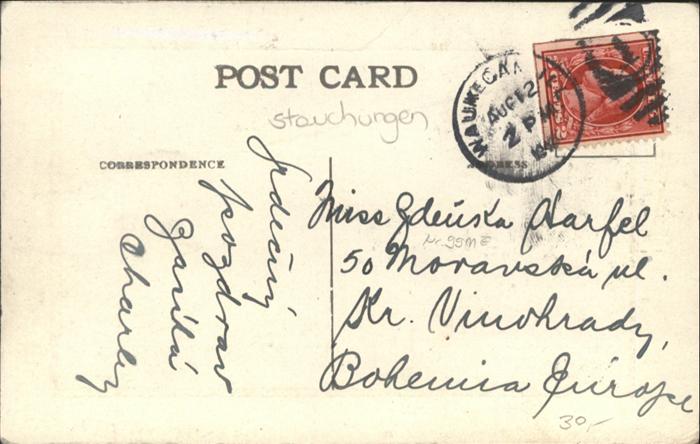 POST CARD
stauchungen
CORRESPONDENCE
ADDRESS
WAUKEGAN
AUG 12
2 PM
Srdečný
pozdrav
zasílá
Charley
Miss Zdeńka Harfel
50 Moravská ul.
Kr. Vinohrady,
Bohemia Europe
30,-